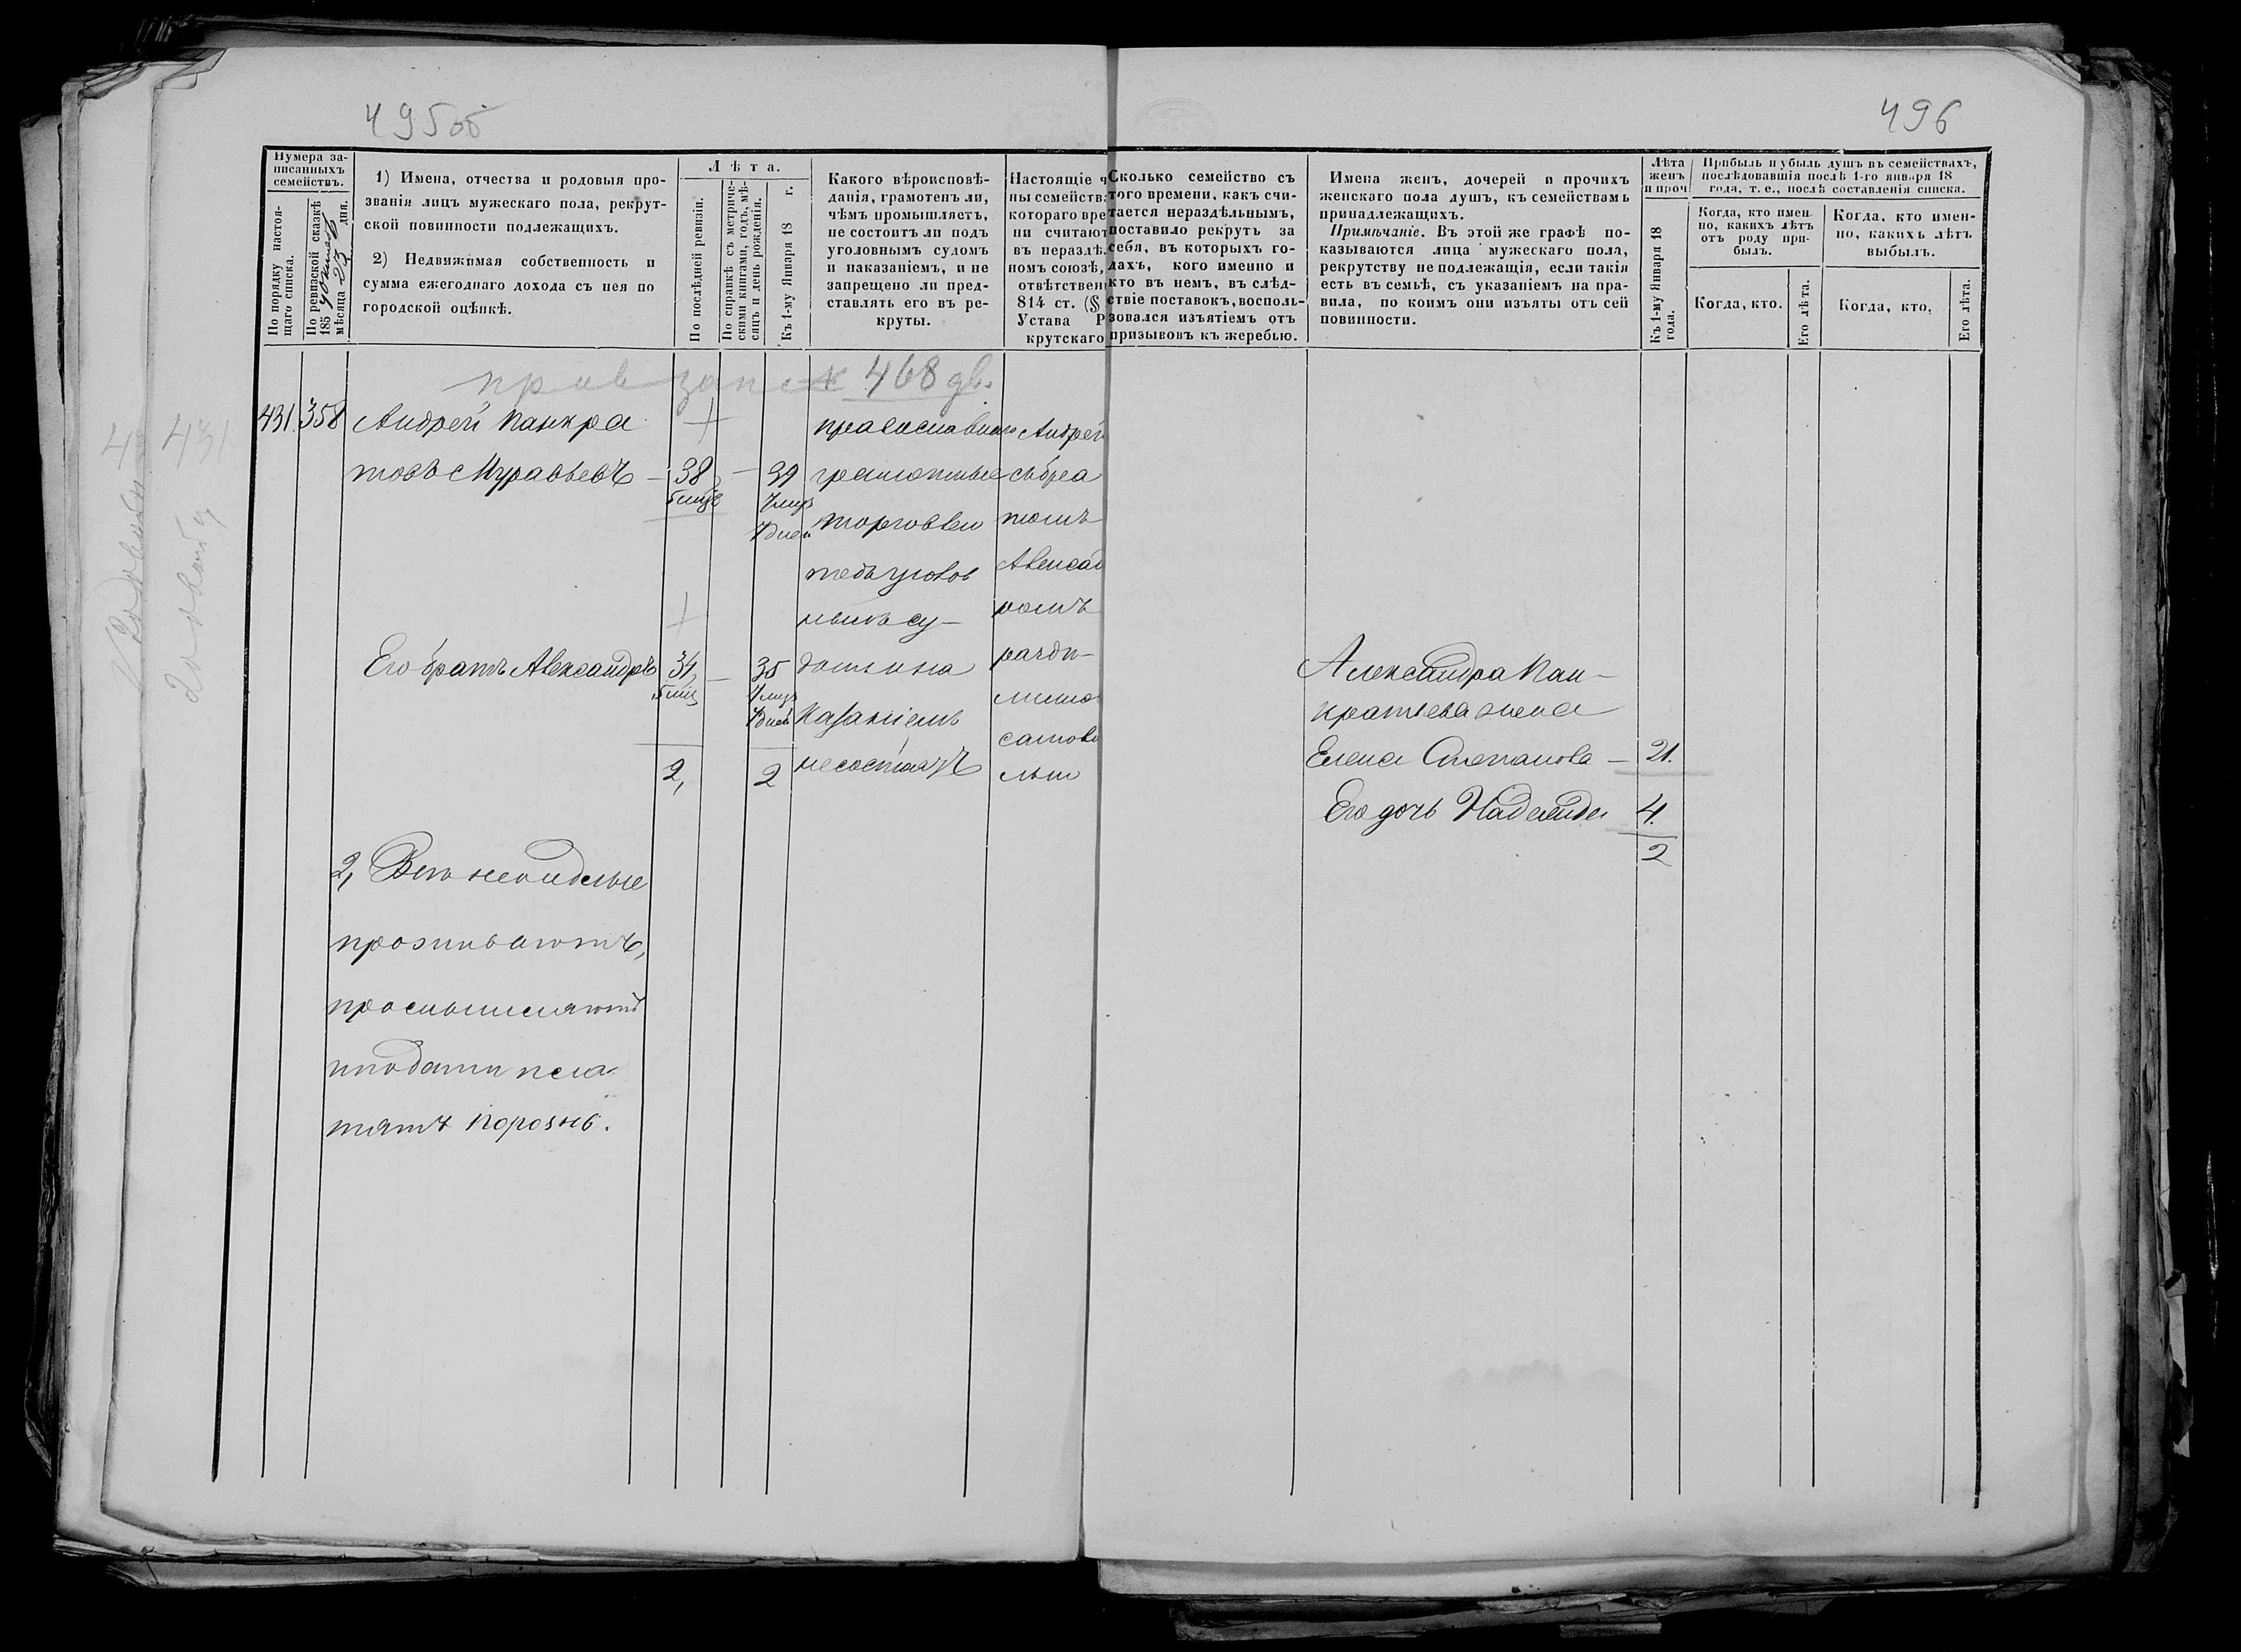 495об
496
Нумера за-
писанныхъ
семействъ.
По порядку настоя-
щаго списка.
По ревизской сказкѣ
185
мѣсяца 23 дня.
1) Имена, отчества и родовыя про-
званія лицъ мужескаго пола, рекрут-
ской повинности подлежащихъ.
2) Недвижимая собственность и
сумма ежегоднаго дохода съ нея по
городской оцѣнкѣ.
Лѣта.
По послѣдней ревизіи.
По справкѣ съ метриче-
скими книгами, годъ, мѣ-
сяцъ и день рожденія.
Къ 1-му Января 18 г.
Какого вѣроисповѣ-
данія, грамотенъ ли,
чѣмъ промышляетъ,
не состоитъ ли подъ
уголовнымъ судомъ
и наказаніемъ, и не
запрещено ли пред-
ставлять его въ ре-
круты.
Настоящіе ч
ны семейства
котораго вре
ни считают
въ нераздѣ
номъ союзѣ,
отвѣтствен
814 ст. (§
Устава Р
крутскаго
Сколько семейство съ
того времени, какъ счи-
тается нераздѣльнымъ,
поставило рекрутъ за
себя, въ которыхъ го-
дахъ, кого именно и
кто въ немъ, въ слѣд-
ствіе поставокъ, восполь-
зовался изъятіемъ отъ
призывовъ къ жеребью.
Имена женъ, дочерей и прочихъ
женскаго пола душъ, къ семействамъ
принадлежащихъ.
Примѣчаніе. Въ этой же графѣ по-
казываются лица мужескаго пола,
рекрутству не подлежащія, если такія
есть въ семьѣ, съ указаніемъ на пра-
вила, по коимъ они изъяты отъ сей
повинности.
Лѣта
женъ
и проч
Къ 1-му Января 18
года.
Прибыль и убыль душъ въ семействахъ,
послѣдовавшія послѣ 1-го января 18
года, т. е., послѣ составленія списка.
Когда, кто имен-
но, какихъ лѣтъ
отъ роду при-
былъ.
Когда, кто имен-
но, какихъ лѣтъ
выбылъ.
Когда, кто.
Его лѣта.
Когда, кто.
Его лѣта.
468 дв.
431
431 358 Андрей Панкра
товъ Муравьевъ — 38 — 39
7 мцъ
4 дней
Его братъ Александръ 34 — 35
4 дней
2, 2
православнаго
грамотные
торговлей
подъ уголов
нымъ су-
домъ и на
казаніемъ
несостоятъ
Андрей
съ бра
томъ
Алексад
ромъ
разди-
лились
самово
льно
Александра Пан-
кратьева жена
Елена Степанова — 21.
Его дочь Надежда 4.
2
2, Въ
проживаютъ,
промышляютъ
и подати пла
тятъ порознь.